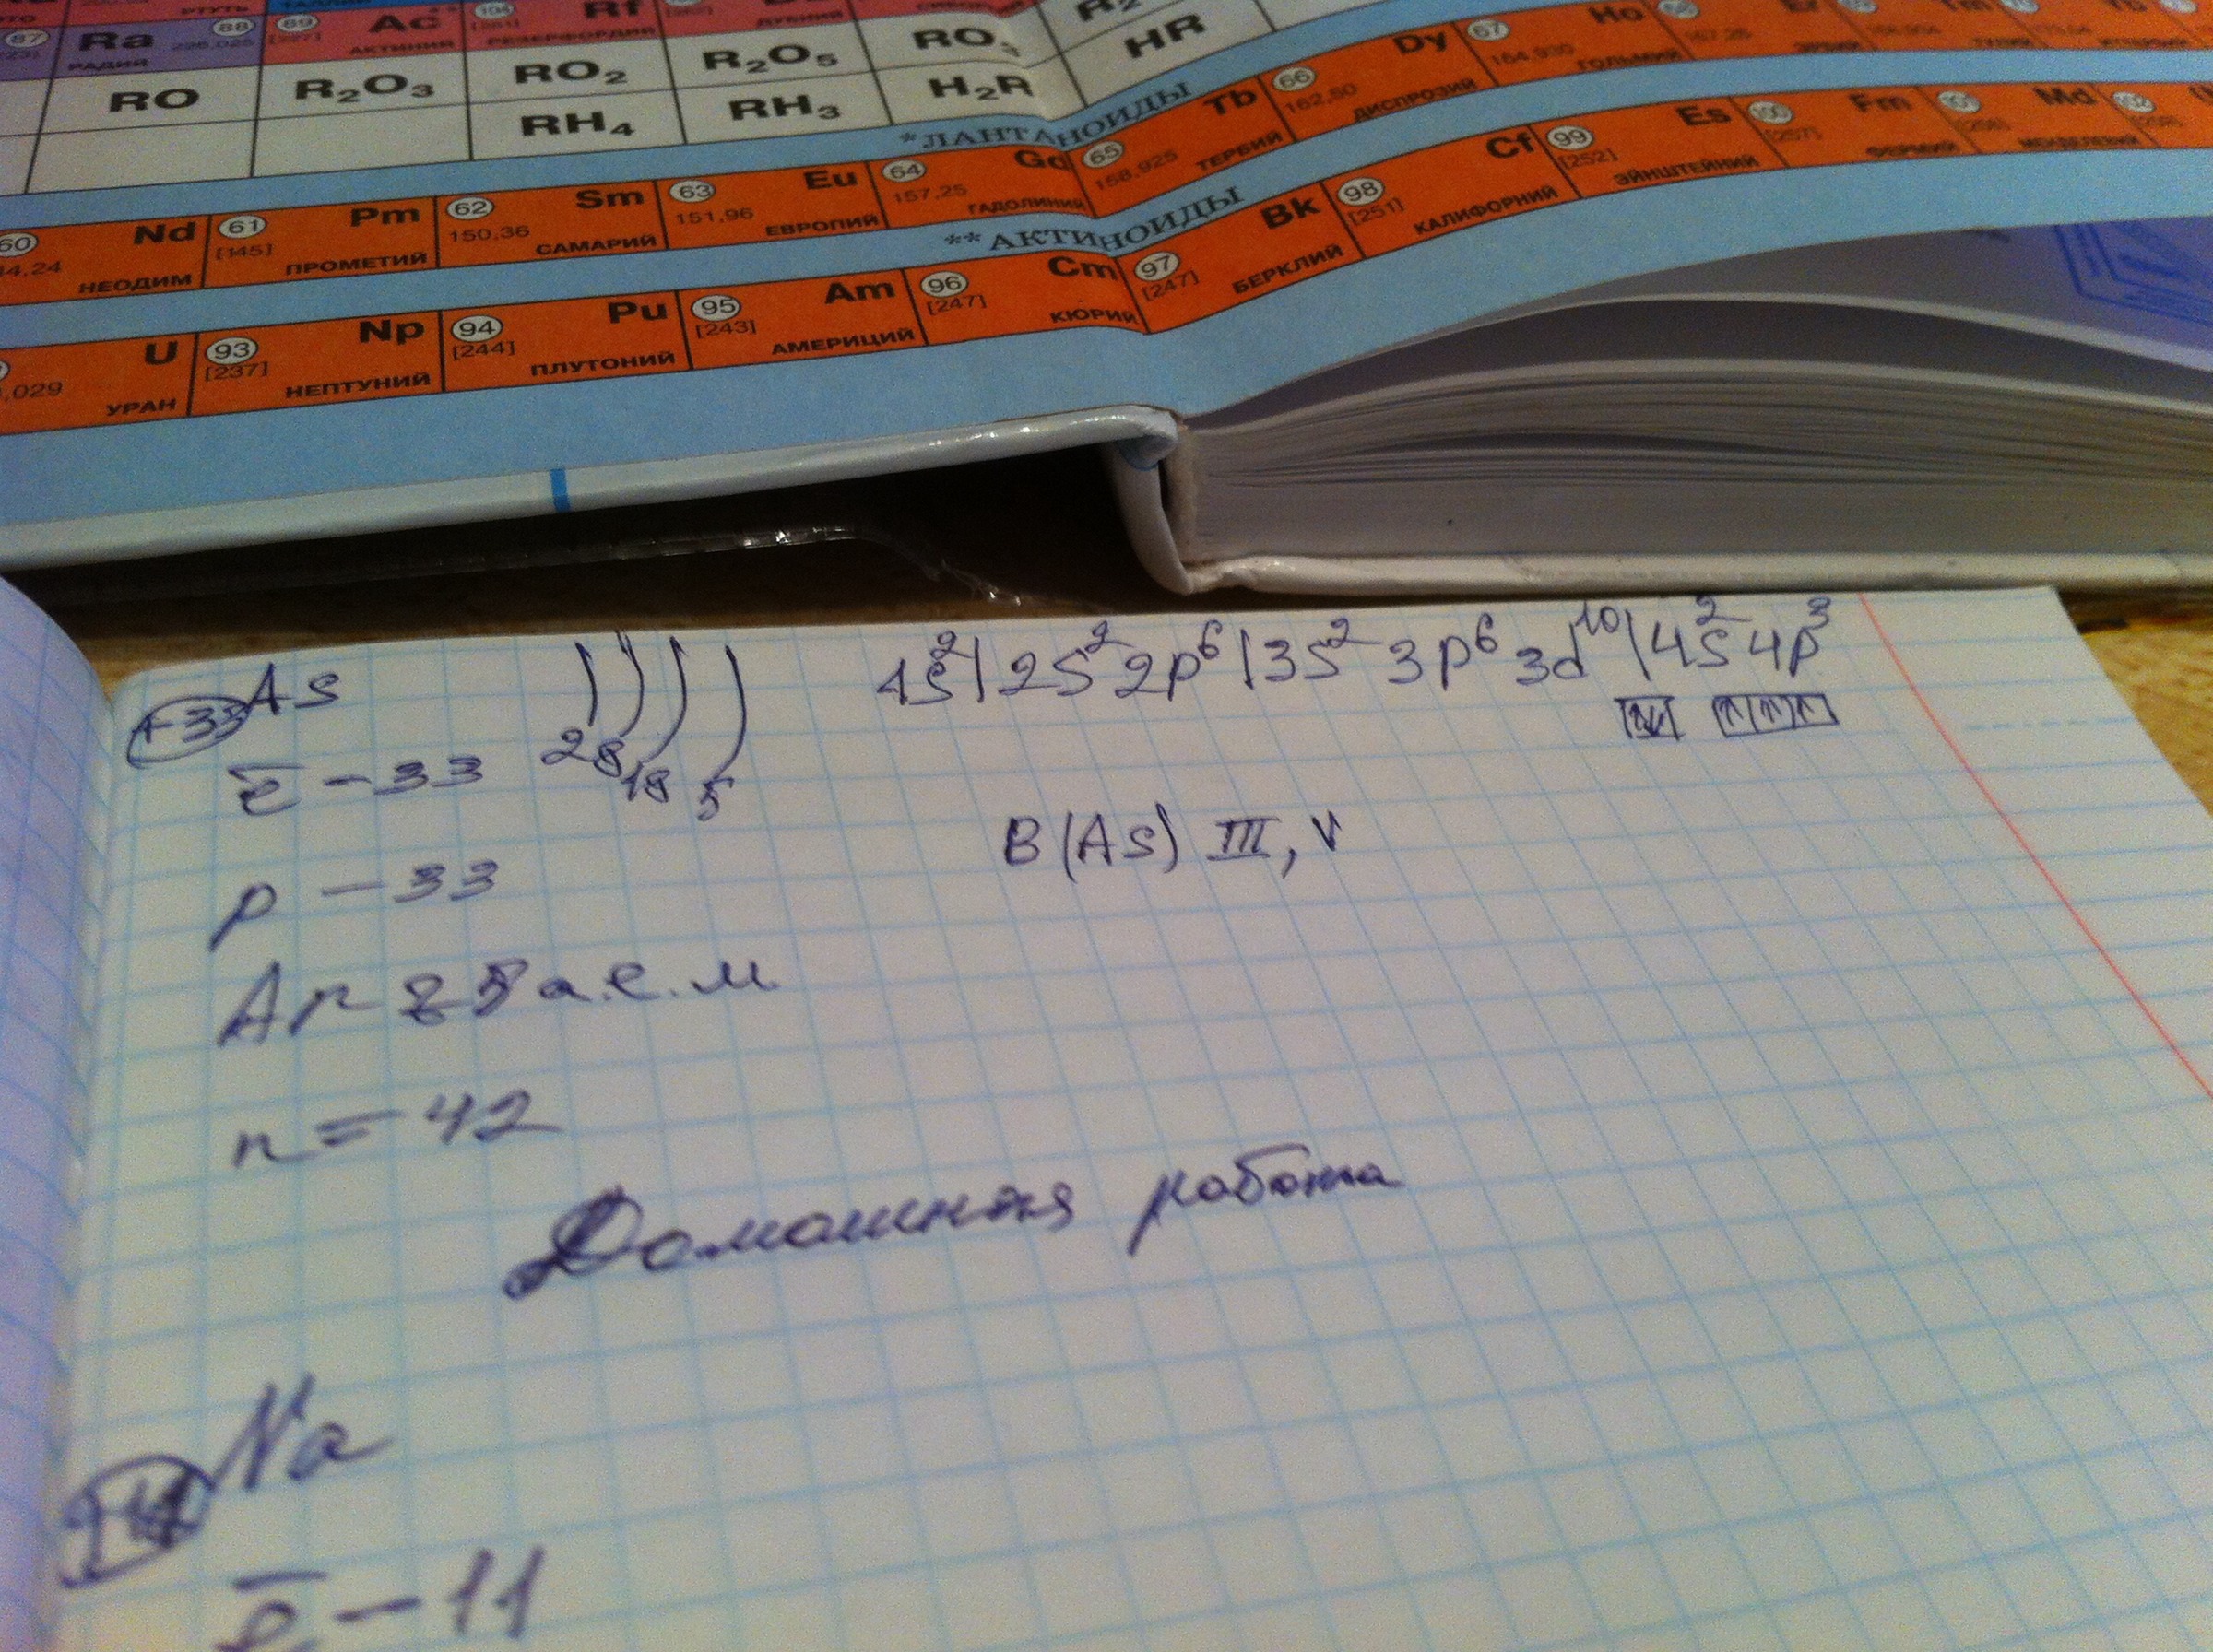 РТУТЬ ТАЛЛИЙ
87 Ra 88 226,025 РАДИЙ 89 Ac** [227] АКТИНИЙ 104 Rf [261] РЕЗЕРФОРДИЙ ДУБНИЙ
RO R₂O₃ RO₂ R₂O₅ RO₃
RH₄ RH₃ H₂R HR
*ЛАНТАНОИДЫ
60 Nd 144,24 НЕОДИМ 61 Pm [145] ПРОМЕТИЙ 62 Sm 150,36 САМАРИЙ 63 Eu 151,96 ЕВРОПИЙ 64 Gd 157,25 ГАДОЛИНИЙ 65 Tb 158,925 ТЕРБИЙ 66 Dy 162,50 ДИСПРОЗИЙ 67 Ho 164,930 ГОЛЬМИЙ 68 Er 167,26 ЭРБИЙ Tm ТУЛИЙ
**АКТИНОИДЫ
U ,029 УРАН 93 Np [237] НЕПТУНИЙ 94 Pu [244] ПЛУТОНИЙ 95 Am [243] АМЕРИЦИЙ 96 Cm [247] КЮРИЙ 97 Bk [247] БЕРКЛИЙ 98 Cf [251] КАЛИФОРНИЙ 99 Es [252] ЭЙНШТЕЙНИЙ 100 Fm [257] ФЕРМИЙ 101 Md [258] МЕНДЕЛЕВИЙ 102
+33 As 2 8 18 5 1s²|2s²2p⁶|3s²3p⁶3d¹⁰|4s²4p³
ē – 33
B(As) III, V
p – 33
Ar 75 а.е.м
n = 42
Домашняя работа
Na
ē – 11